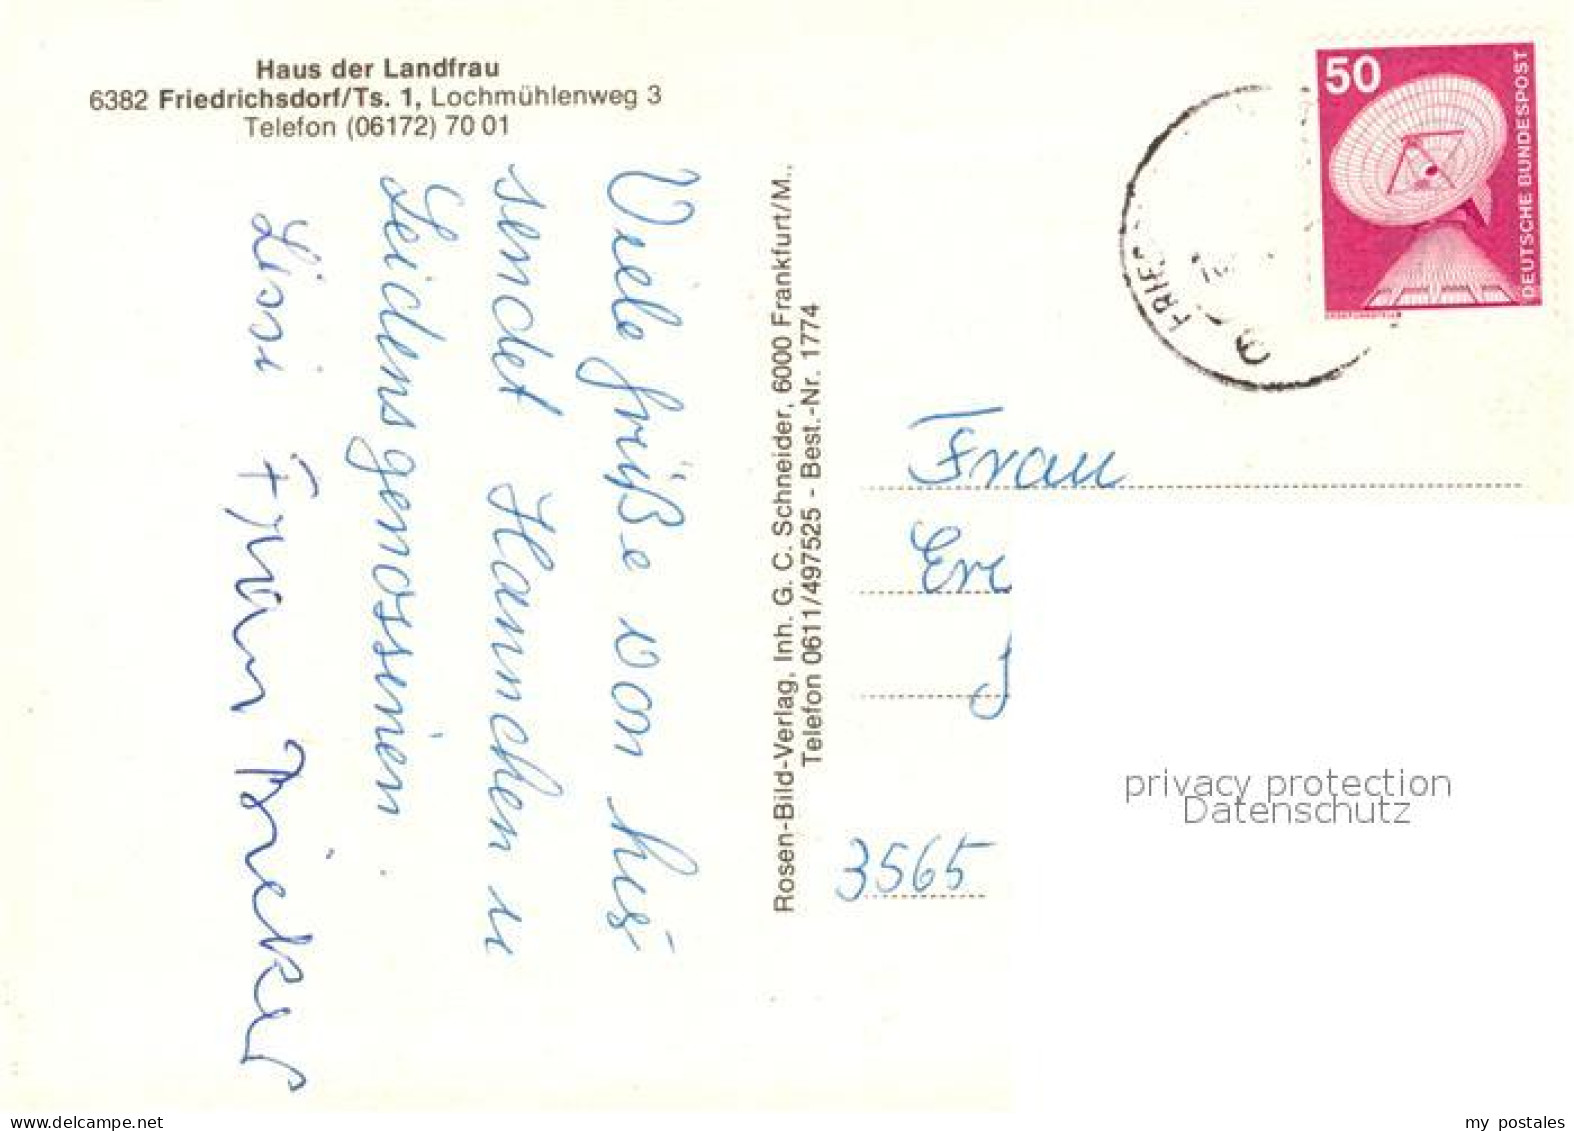 Haus der Landfrau
6382 Friedrichsdorf/Ts. 1, Lochmühlenweg 3
Telefon (06172) 70 01
Viele Grüße von hier
sendet Hannchen u
Leidensgenossinen.
Lissi Frau Bricker
Rosen-Bild-Verlag, Inh. G. C. Schneider, 6000 Frankfurt/M.,
Telefon 0611/497525 - Best.-Nr. 1774
50
DEUTSCHE BUNDESPOST
FRIE
Frau
3565
privacy protection
Datenschutz
my postales